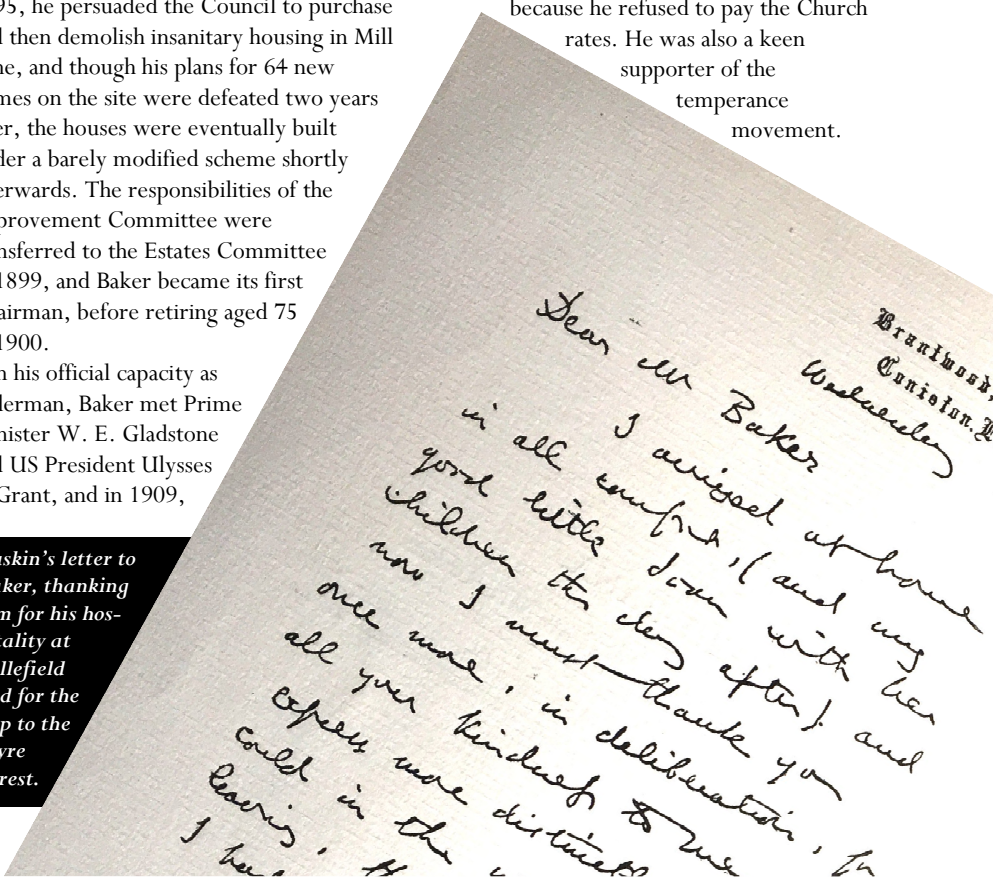 95, he persuaded the Council to purchase
l then demolish insanitary housing in Mill
ne, and though his plans for 64 new
mes on the site were defeated two years
er, the houses were eventually built
der a barely modified scheme shortly
erwards. The responsibilities of the
provement Committee were
nsferred to the Estates Committee
1899, and Baker became its first
airman, before retiring aged 75
1900.
n his official capacity as
lerman, Baker met Prime
nister W. E. Gladstone
l US President Ulysses
Grant, and in 1909,
uskin's letter to
aker, thanking
m for his hos-
tality at
llefield
d for the
p to the
yre
rest.
because he refused to pay the Church
rates. He was also a keen
supporter of the
temperance
movement.
Brantwood,
Coniston.
Wednesday
Dear Mr Baker
I arrived at home
in all comfort, (and my
good little Joan with her
children the day after) and
now I must thank you
once more, in deliberation, for
all your kindness to me
express more distinctly
could in the
leaving,
I